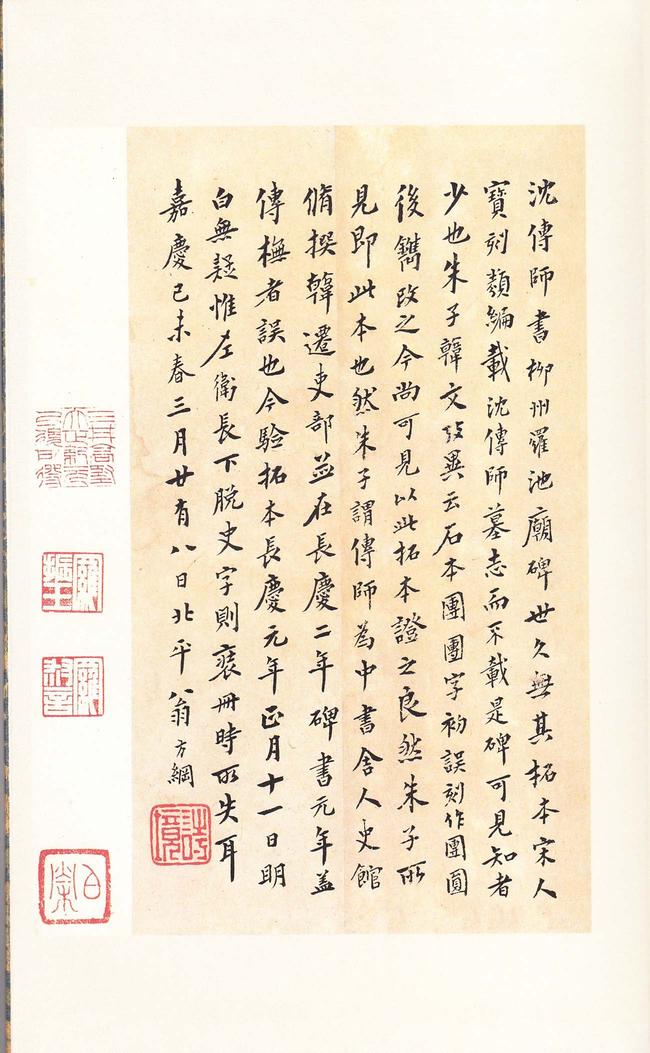 沈傳師書柳州羅池廟碑世久無其拓本宋人
寶刻類編載沈傳師墓志而不載是碑可見知者
少也朱子韓文攷異云石本團團字初誤刻作團圓
後鐫改之今尚可見以此拓本證之良然朱子所
見即此本也然朱子謂傳師為中書舍人史館
脩撰韓遷吏部並在長慶二年碑書元年蓋
傳橅者誤也今驗拓本長慶元年正月十一日明
白無疑惟左衛長下脫史字則裝冊時所失耳
嘉慶己未春三月廿有八日北平翁方綱
詩境
羅振玉
羅叔言